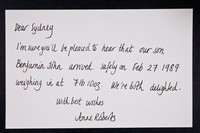 Dear Sydney
I'm sure you'll be pleased to hear that our son
Benjamin John arrived safely on Feb 27 1989
weighing in at 7lb 10oz. We're both delighted.
with best wishes
Anna Roberts